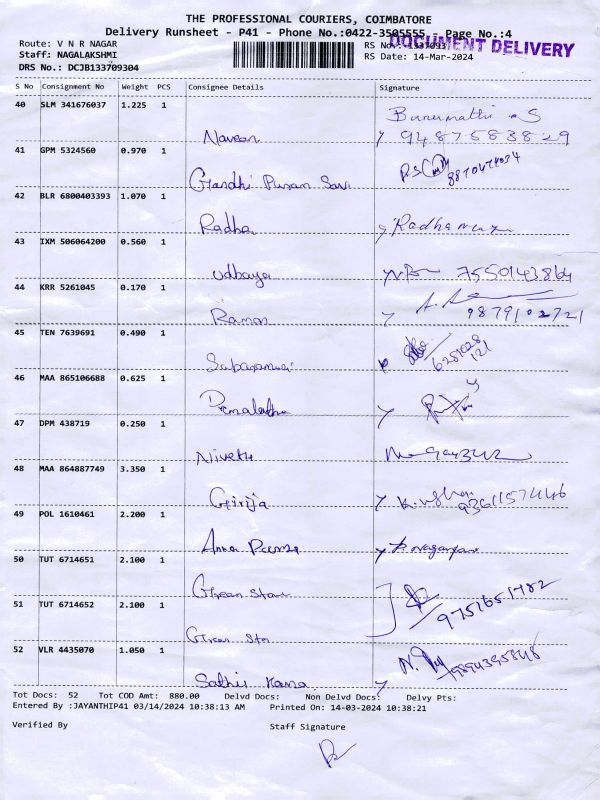 THE PROFESSIONAL COURIERS, COIMBATORE
Delivery Runsheet - P41 - Phone No.:0422-3505555 - Page No.:4
Route: V N R NAGAR
RS No: 1337093
DOCUMENT DELIVERY
Staff: NAGALAKSHMI
RS Date: 14-Mar-2024
DRS No.: DCJB133709304
S No Consignment No Weight PCS Consignee Details Signature
40 SLM 341676037 1.225 1
Naveen 9487583829
41 GPM 5324560 0.970 1
Gandhi
42 BLR 6800403393 1.070 1
Radha
43 IXM 506064200 0.560 1
Udhaya 7550143864
44 KRR 5261045 0.170 1
Raman 9879102721
45 TEN 7639691 0.490 1
46 MAA 865106688 0.625 1
Premalatha
47 DPM 438719 0.250 1
Nivetha
48 MAA 864887749 3.350 1
Girija
49 POL 1610461 2.200 1
Anna
50 TUT 6714651 2.100 1
Green
51 TUT 6714652 2.100 1
9751651782
52 VLR 4435070 1.050 1
Tot Docs: 52 Tot COD Amt: 880.00 Delvd Docs: Non Delvd Docs: Delvy Pts:
Entered By :JAYANTHIP41 03/14/2024 10:38:13 AM Printed On: 14-03-2024 10:38:21
Verified By Staff Signature